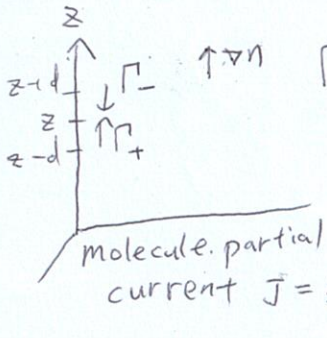 z
z+d Γ₋ ↑∇n
z
z-d ↑Γ₊
molecule. partial
current J =